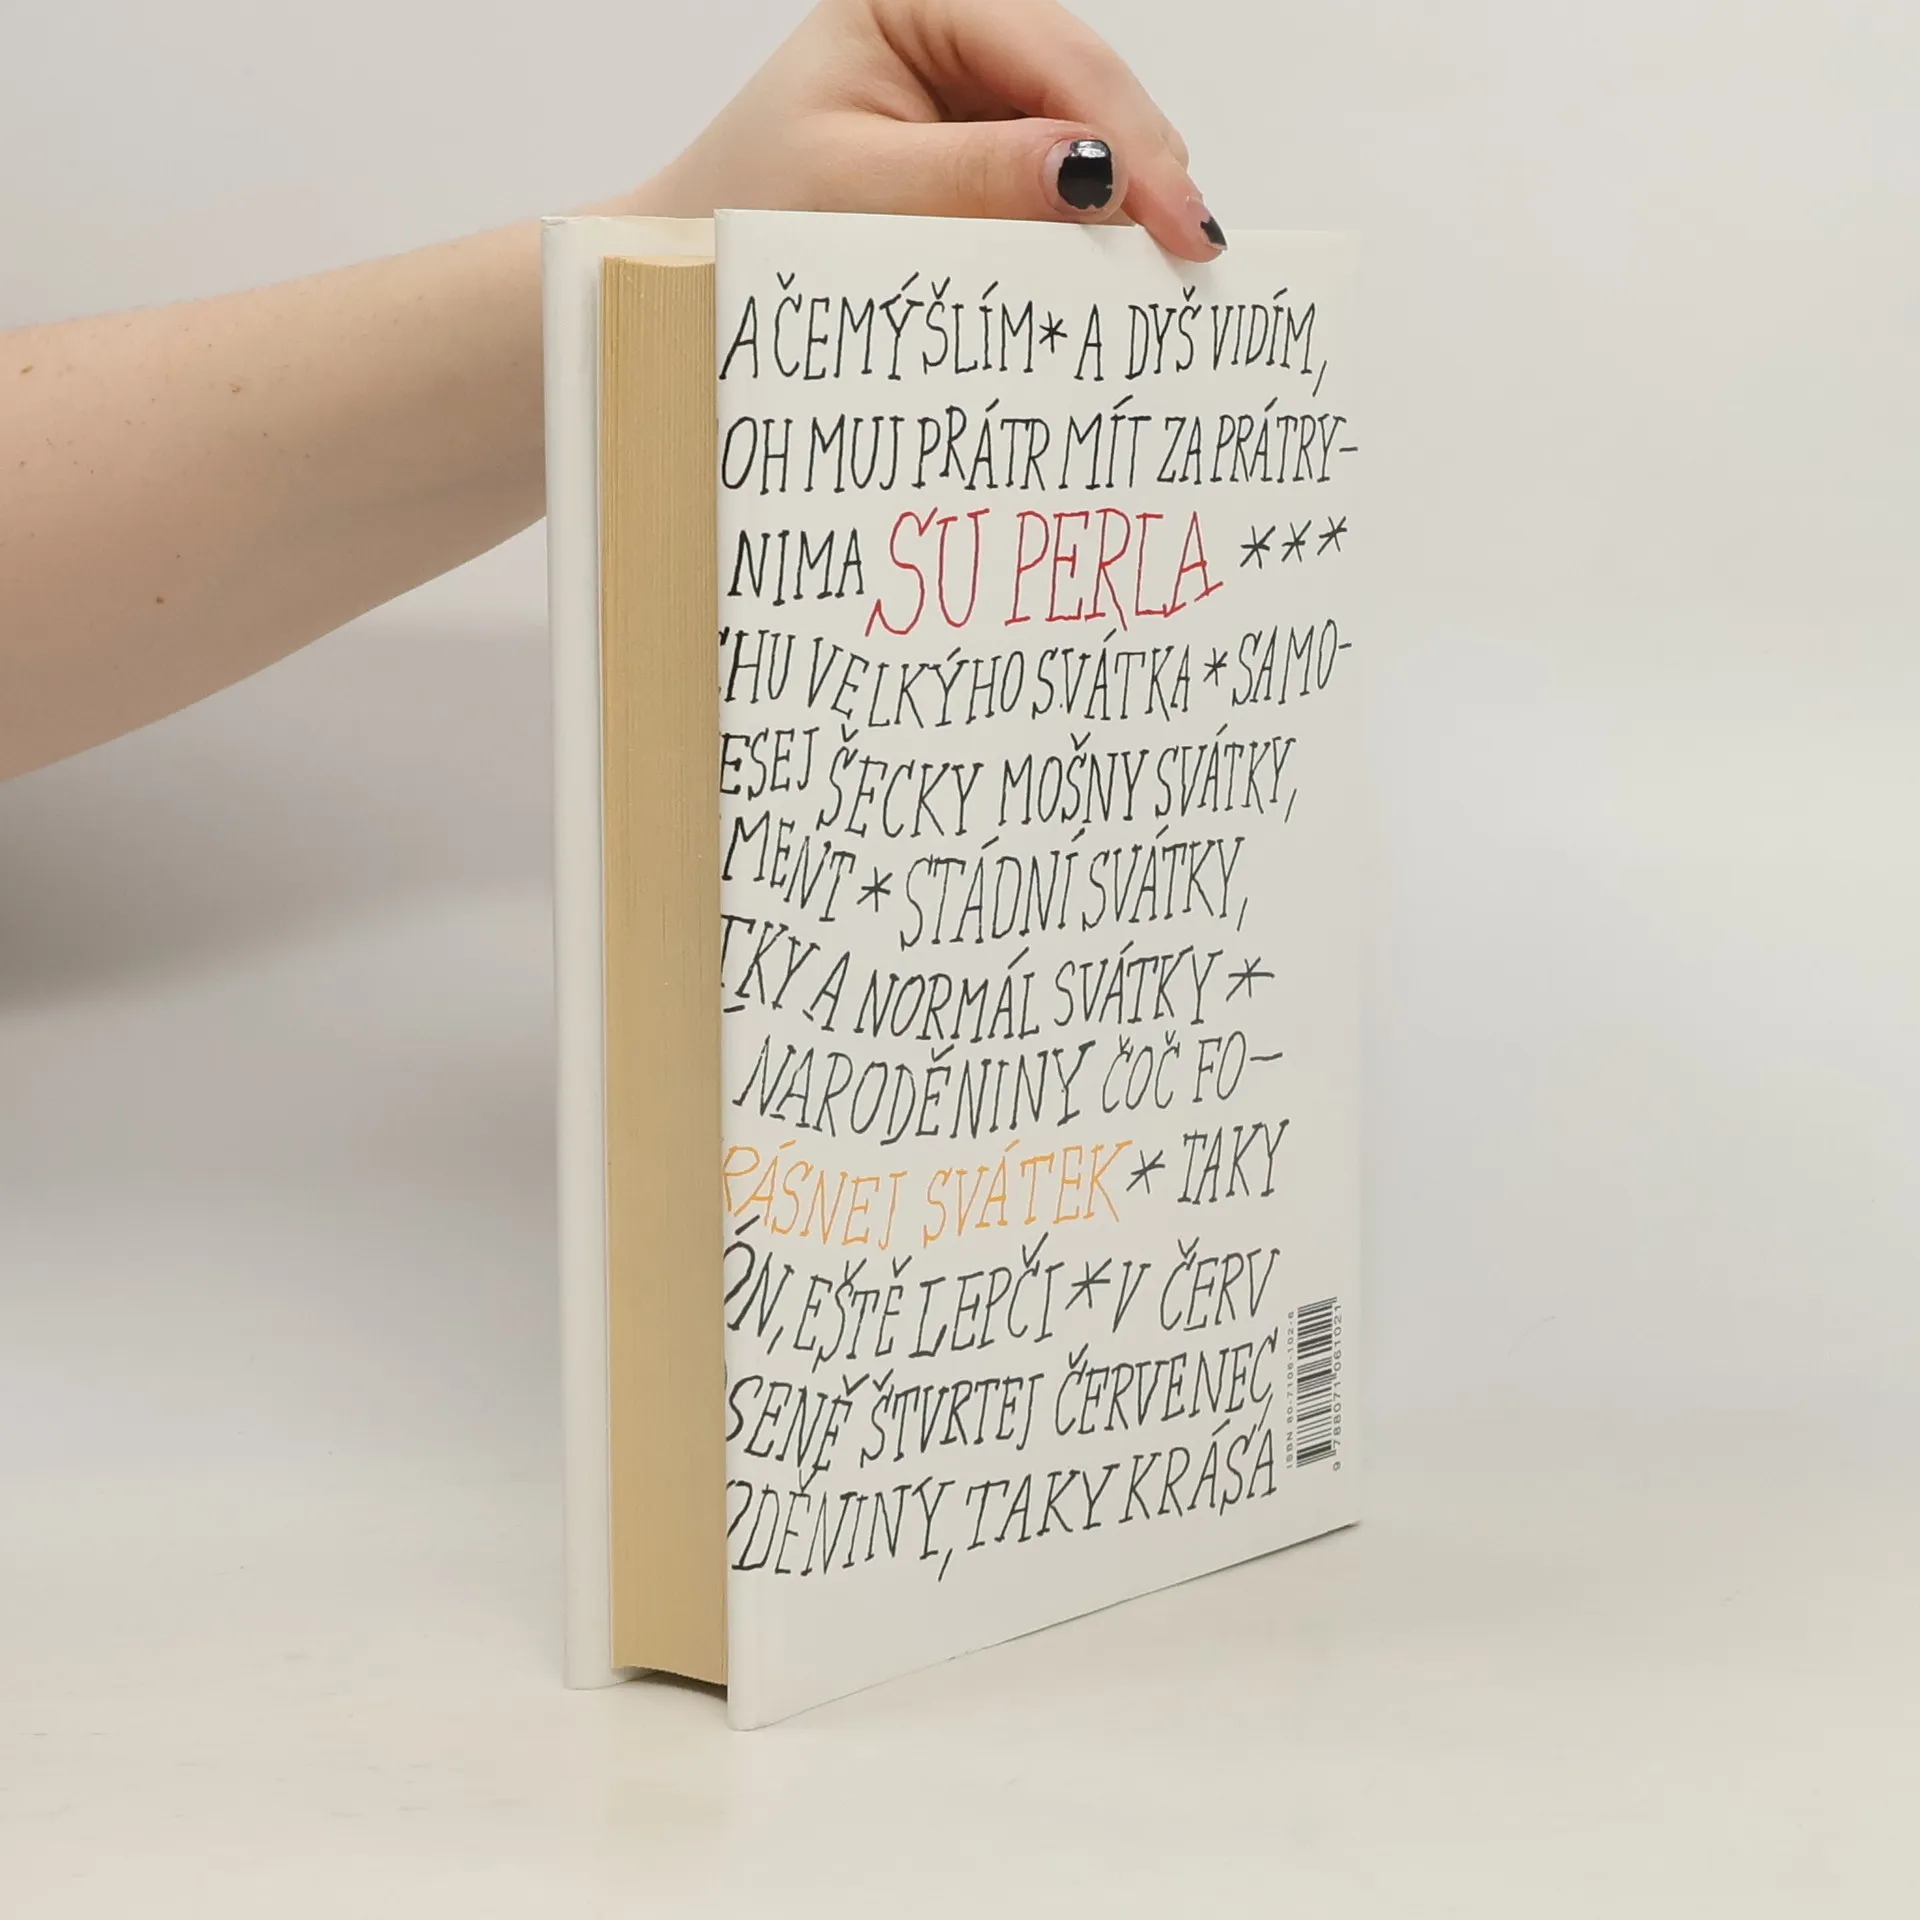 A ČEMÝŠLÍM * A DYŠ VIDÍM,
OH MUJ PRÁTR MÍT ZA PRÁTRY-
NIMA SU PERLA ***
HU VELKÝHO SVÁTKA * SAMO-
ESEJ ŠECKY MOŠNY SVÁTKY,
MENT * STÁDNÍ SVÁTKY,
TKY A NORMÁL SVÁTKY *
NARODĚNINY ČOČ FO-
RÁSNEJ SVÁTEK * TAKY
ÓN, EŠTĚ LEPČI * V ČERV
SENĚ ŠTVRTEJ ČERVENEC,
DĚNINY, TAKY KRÁSA
ISBN 80-7106-102-6
9 788071 061021